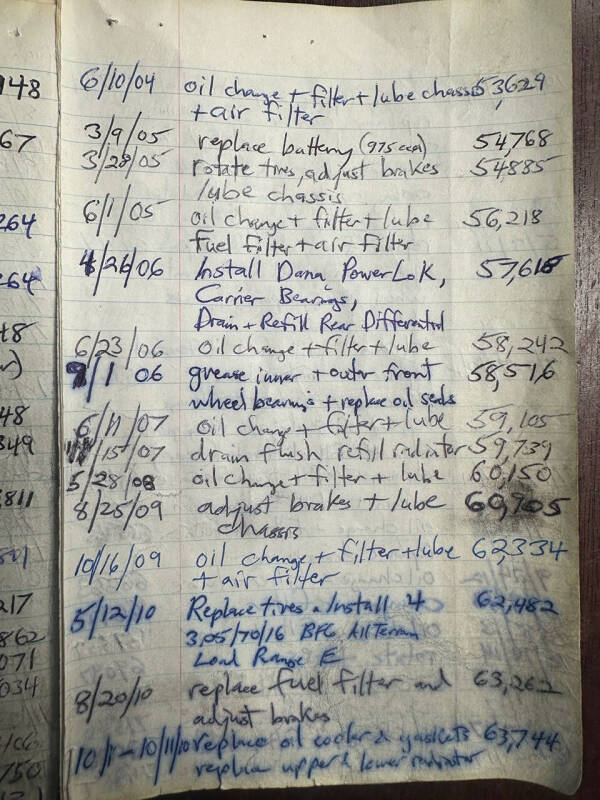 148
67
264
264
48
48
349
,811
217
862
071
034
106
750
6/10/04 oil change + filter + lube chassis 53,629
+ air filter
3/9/05 replace battery (975 cca) 54,768
3/28/05 rotate tires, adjust brakes 54,885
lube chassis
6/1/05 oil change + filter + lube 56,218
fuel filter + air filter
4/26/06 Install Dana PowerLoK, 57,615
Carrier Bearings,
Drain + Refill Rear Differential
6/23/06 oil change + filter + lube 58,242
9/1/06 grease inner + outer front 58,516
wheel bearings + replace oil seals
6/11/07 oil change + filter + lube 59,105
11/15/07 drain flush refill radiator 59,739
5/28/08 oil change + filter + lube 60,150
8/25/09 adjust brakes + lube 60,905
chassis
10/16/09 oil change + filter + lube 62,334
+ air filter
5/12/10 Replace tires. Install 4 62,482
3,05/70/16 BFG All Terrain
Load Range E
8/20/10 replace fuel filter and 63,262
adjust brakes
10/1 - 10/11/10 replace oil cooler & gaskets 63,744
replace upper & lower radiator